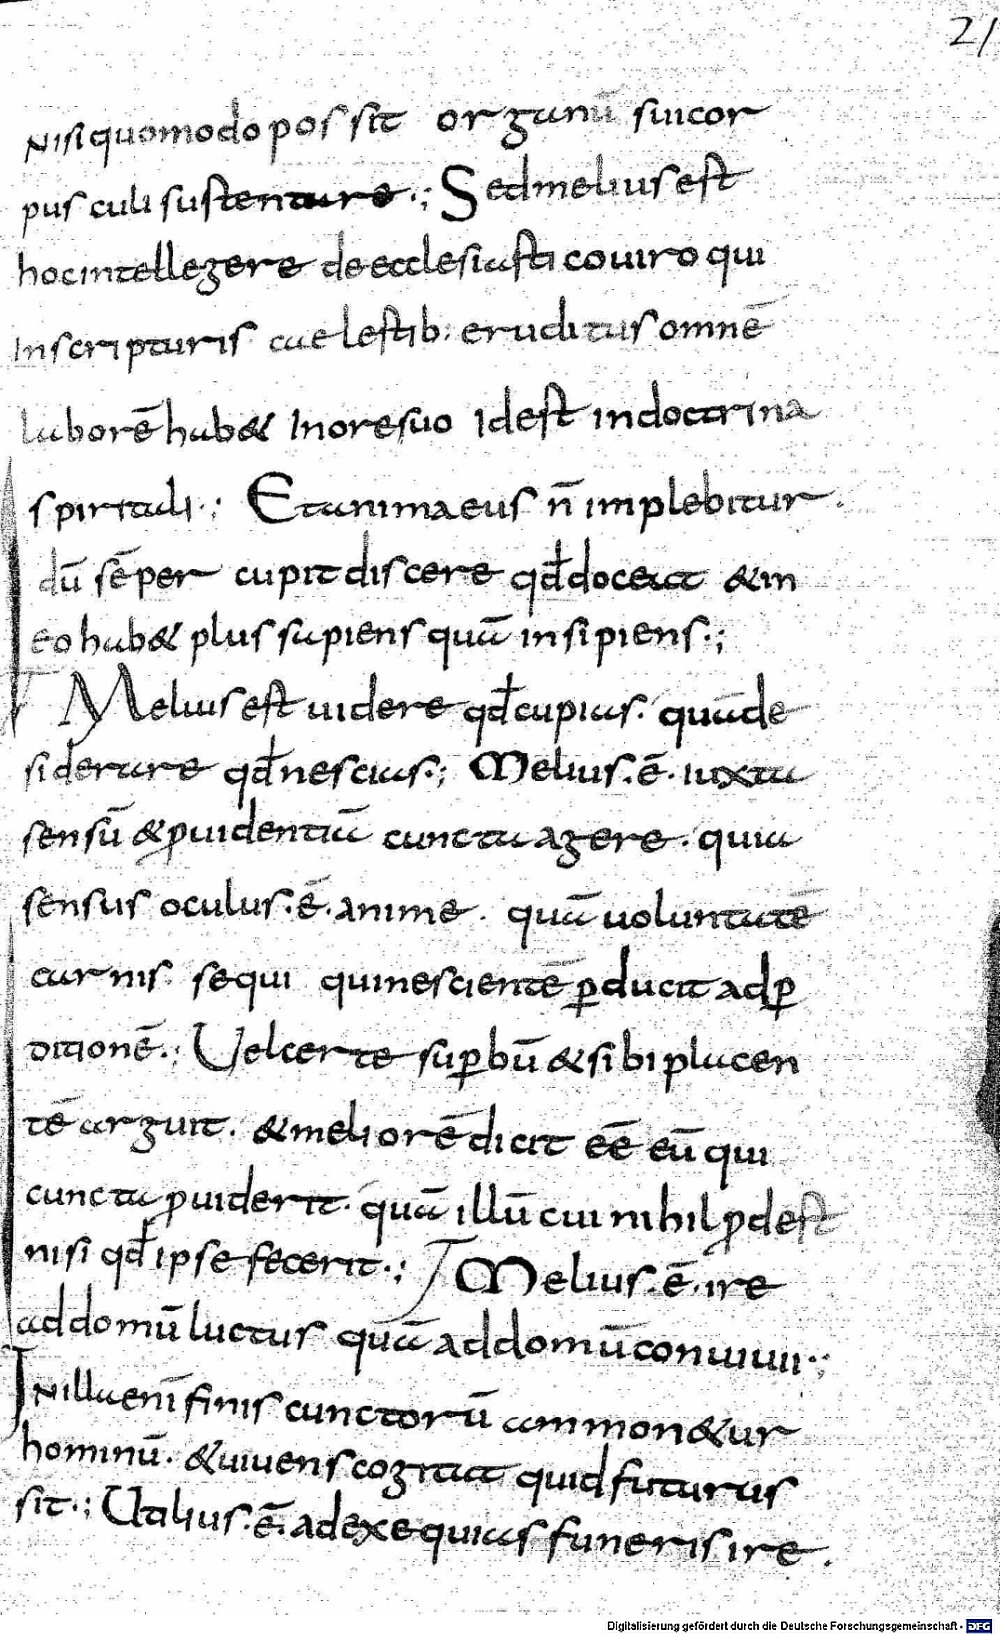 21
nisi quomodo possit organū sui cor
pusculi sustentare·; Sed melius est
hoc intellegere de ecclesiastico uiro qui
In scripturis caelestib: eruditus omnē
laborē hab& In ore suo Id est in doctrina
spiritali·; Et anima eius n̄ implebitur·
dū sēper cupit discere qđ doceat & in
eo hab& plus sapiens quā insipiens·;
Melius est uidere qđ cupias· quā de
siderare qđ nescias·; Melius·ē· iuxta
sensū & ꝓuidentiā cuncta agere· quia
sensus oculus·ē· anime· quā uoluntatē
carnis sequi qui nescientē ꝑducit ad ꝑ
ditionē·; Uel certe suꝑbū & sibi placen
tē arguit· & meliorē dicit eē eū qui
cuncta ꝓuiderit· quā illū cui nihil ꝓdest
nisi qđ ipse fecerit·; Melius·ē· ire
ad domū luctus quā ad domū conuiuii·;
In illa eni finis cunctorū ammon&ur
hominū· & uiuens cogitat quid futurus
sit·; Utilius·ē· ad exequias funeris ire·
Digitalisierung gefördert durch die Deutsche Forschungsgemeinschaft - DFG